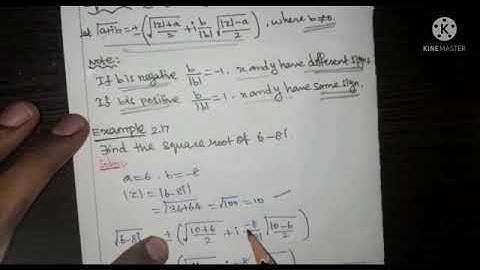 √a+ib = ± (√|z|+a/2 + i b/|b| √|z|-a/2), where b≠0.
Note:
If b is negative b/|b| = -1. x and y have different signs
If b is positive b/|b| = 1. x and y have same sign.
Example 2.17
Find the square root of 6-8i.
Soln:
a=6, b=-8
|z| = |6-8i|
= √36+64 = √100 = 10
√6-8i = ± (√10+6/2 + i -8 √10-6/2)
KINEMASTER